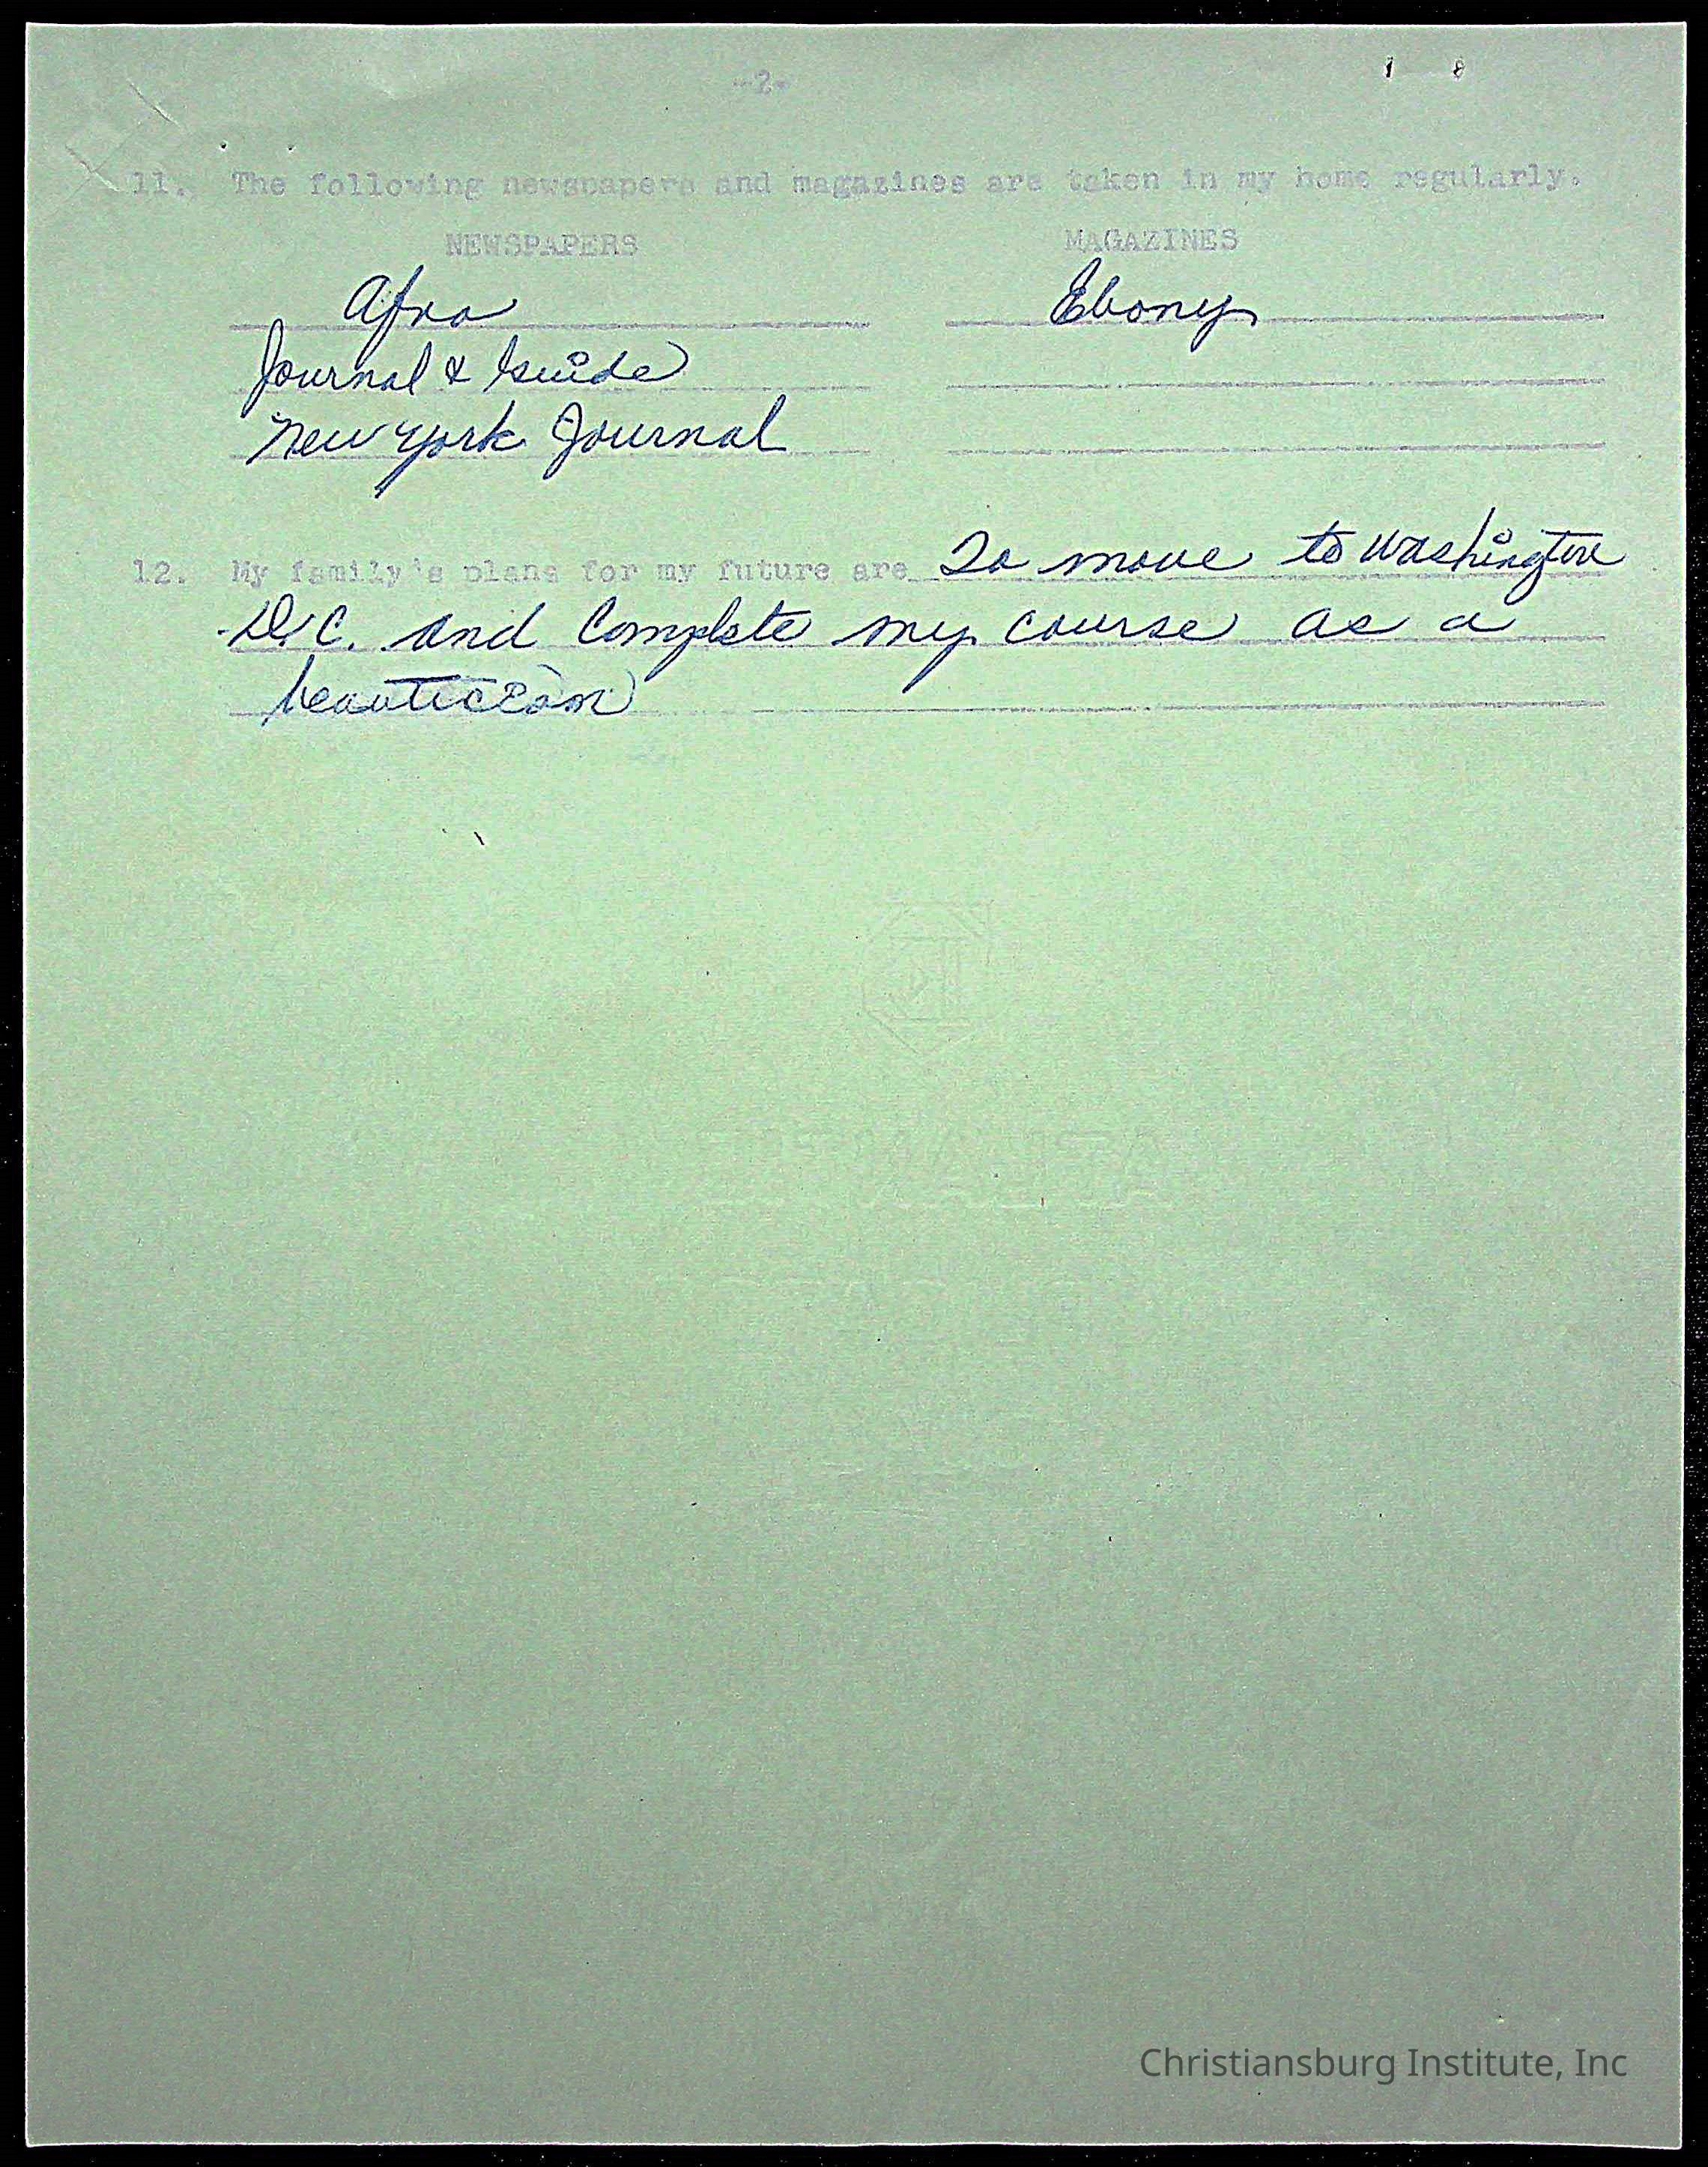 -2-
11. The following newspapers and magazines are taken in my home regularly.
NEWSPAPERS MAGAZINES
Afro Ebony
Journal & Guide
New York Journal
12. My family's plans for my future are To move to Washington
D.C. and Complete my course as a
beautician
Christiansburg Institute, Inc